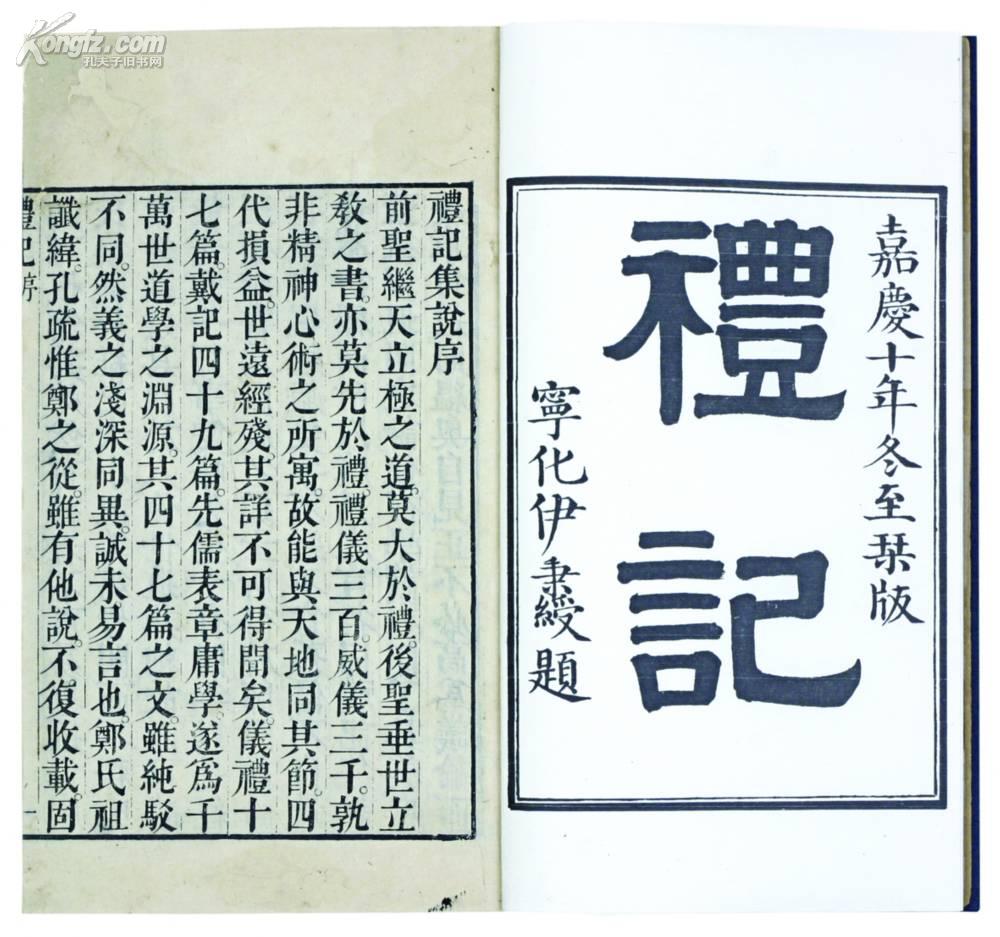 Kongfz.com
孔夫子旧书网
嘉慶十年冬至栞版
禮記
寧化伊秉綬題
禮記集說序
前聖繼天立極之道。莫大於禮。後聖垂世立
敎之書。亦莫先於禮。禮儀三百。威儀三千。孰
非精神心術之所寓。故能與天地同其節。四
代損益。世遠經殘。其詳不可得聞矣。儀禮十
七篇。戴記四十九篇。先儒表章庸學。遂爲千
萬世道學之淵源。其四十七篇之文。雖純駁
不同。然義之淺深同異。誠未易言也。鄭氏祖
讖緯。孔疏惟鄭之從。雖有他說。不復收載。固
禮記 序 一